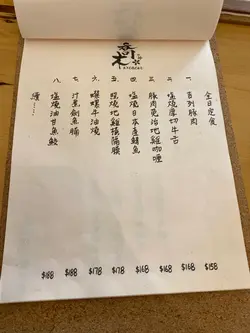 全日定食
一、吉列豚肉 $158
二、塩燒厚切牛舌 $168
三、豚肉免治地雞咖喱 $168
四、塩燒日本產鯖魚 $168
五、照燒地雞橫隔膜 $178
六、螺牛油燒 $178
七、汁煮劍魚腩 $188
八、塩燒油甘魚鮫 $188
續......